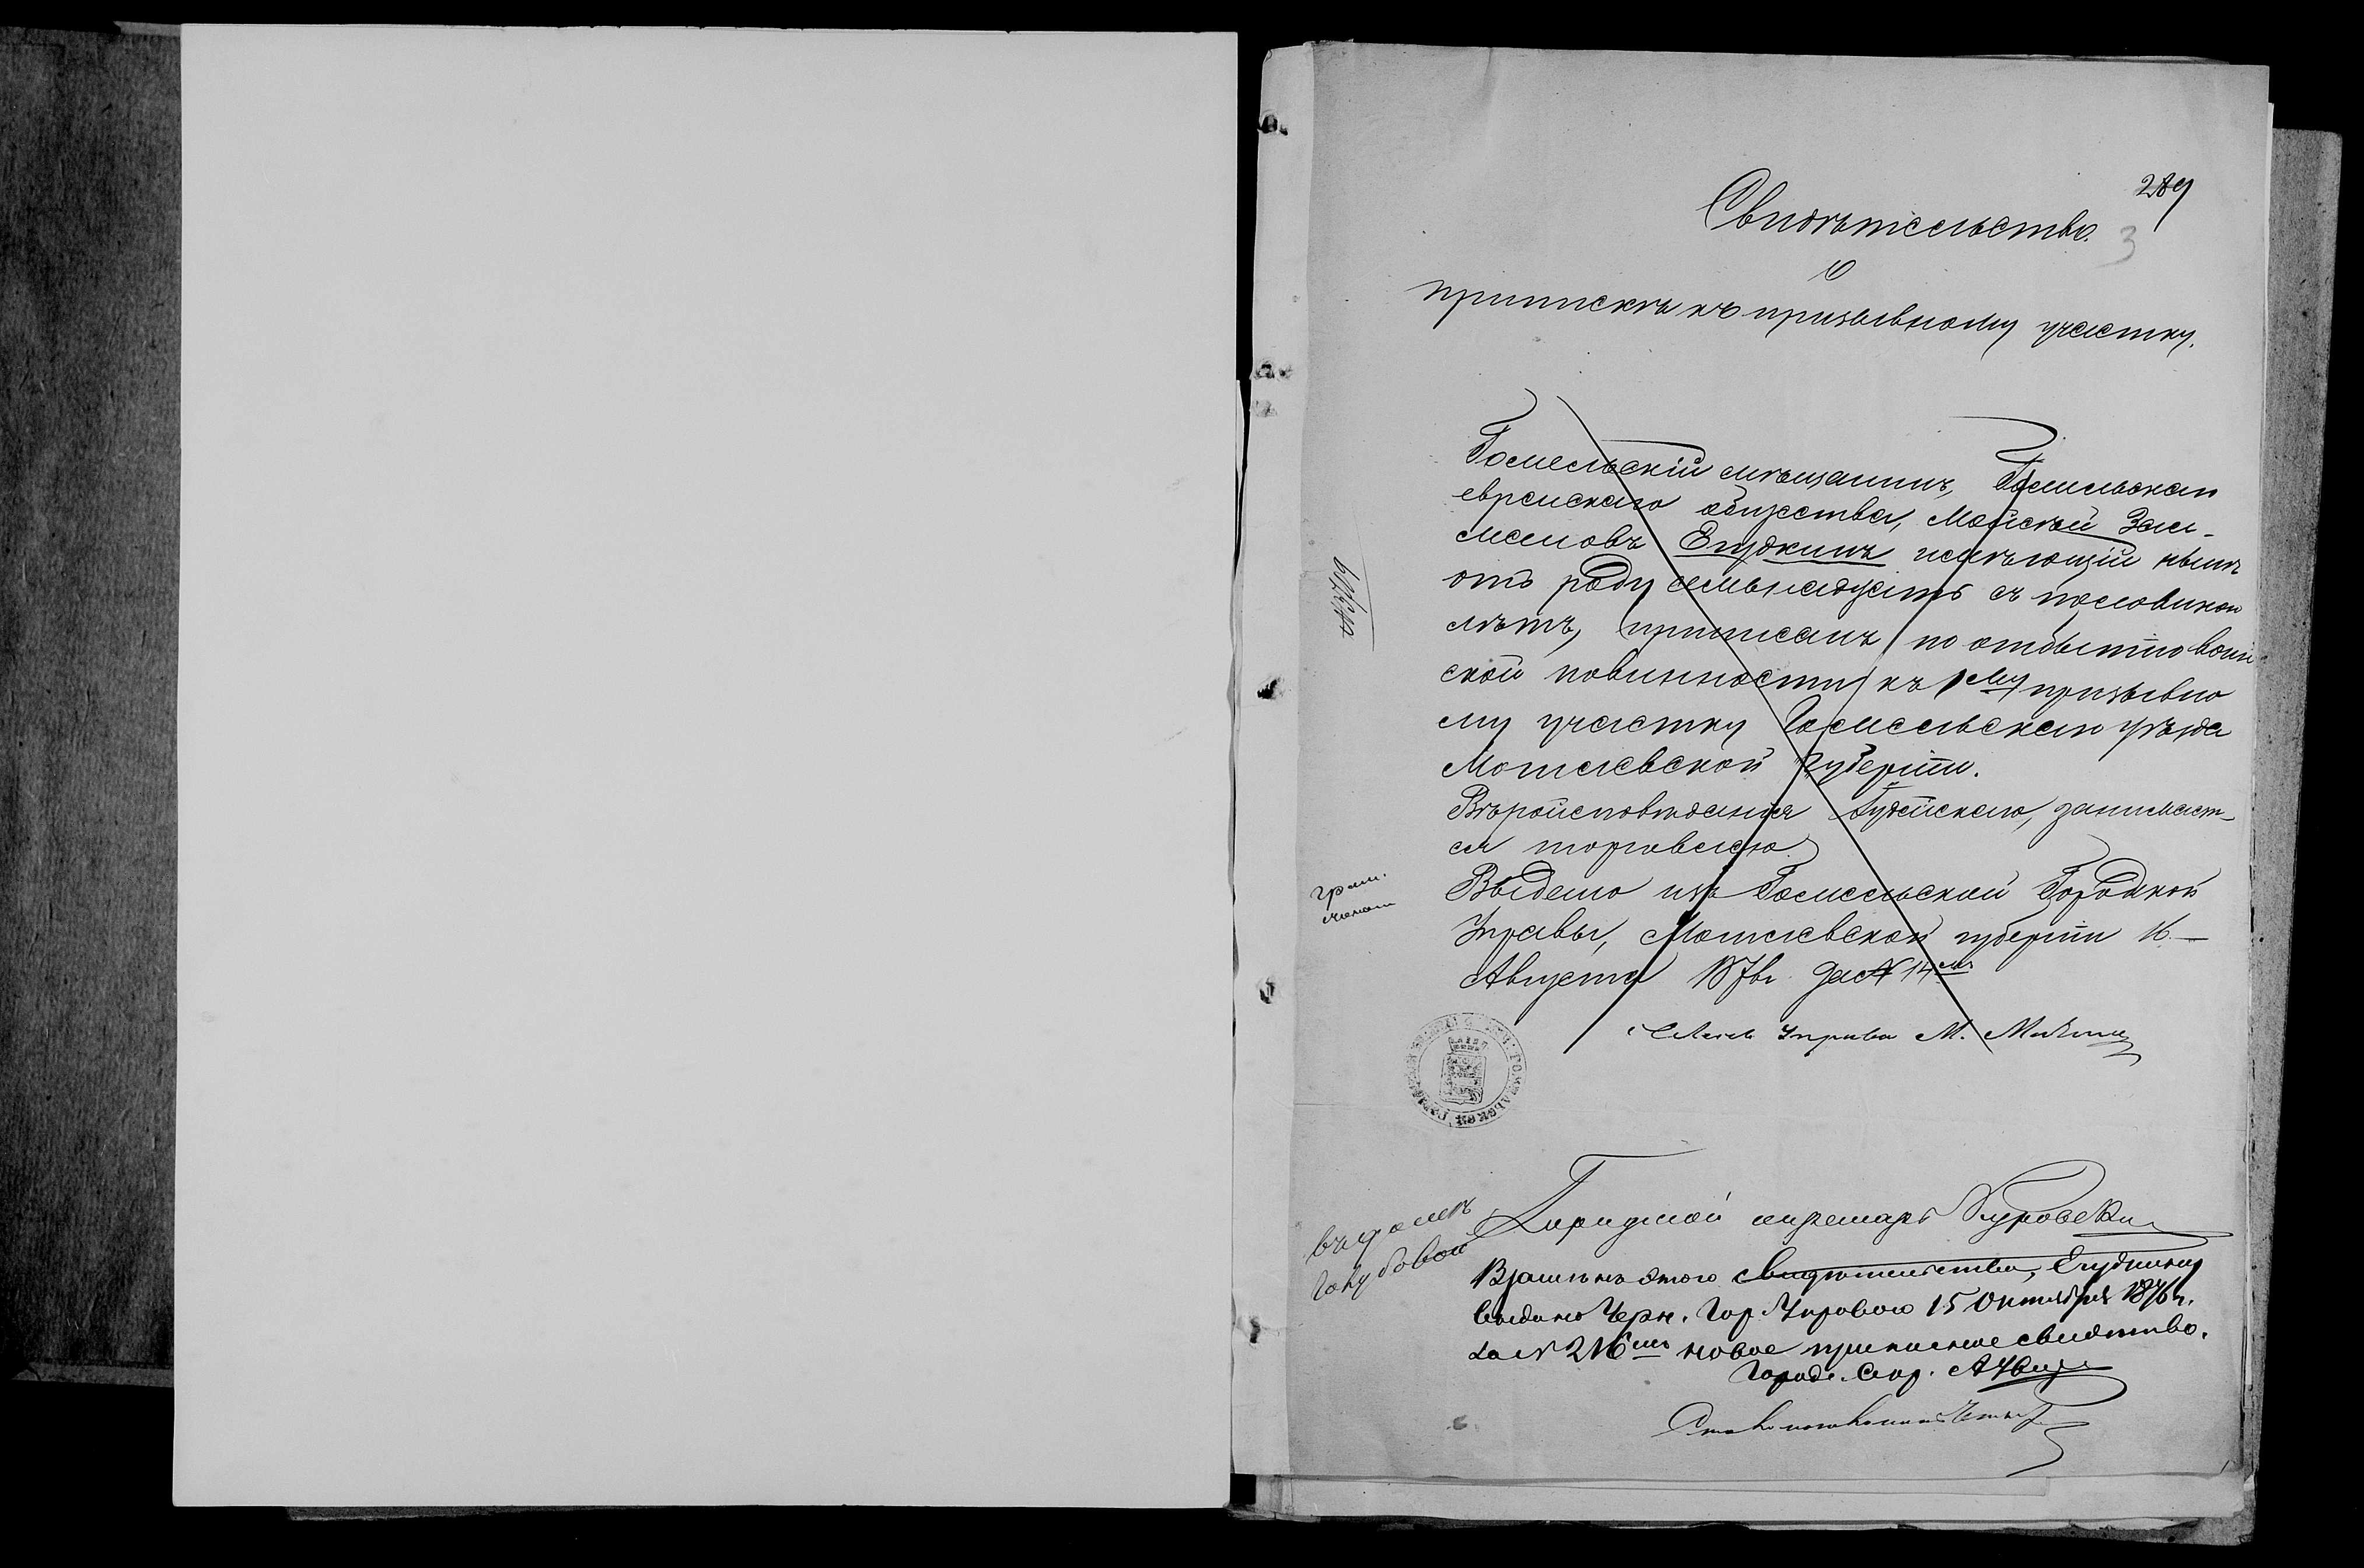 289
Свидѣтельство.
3
О
припискѣ къ призывному участку.
Гомельскій мѣщанинъ, Гомельскаго
еврейскаго общества, Мовсѣй Зал-
мановъ Егудкинъ имѣющій нынѣ
отъ роду семьнадцать съ половиной
лѣтъ, приписанъ по отбытію воин
ской повинности къ 1му призывно
му участку Гомельскаго уѣзда
Могилевской Губерніи.
Вѣроисповѣданія Іудейскаго, занимает-
ся торговлею
грам.
Выдано изъ Гомельской Городской
Управы, Могилевской губерніи 16
Августа 1876г. за № 14мъ
Членъ Управы М.
Городской секретарь
Взамѣнъ этого свидѣтельства, Егудкину
выдано Черн. Гор. Управою 15 Октября 1876 г.
за № 216мъ новое приписное свидѣтво.
Город. Секр.